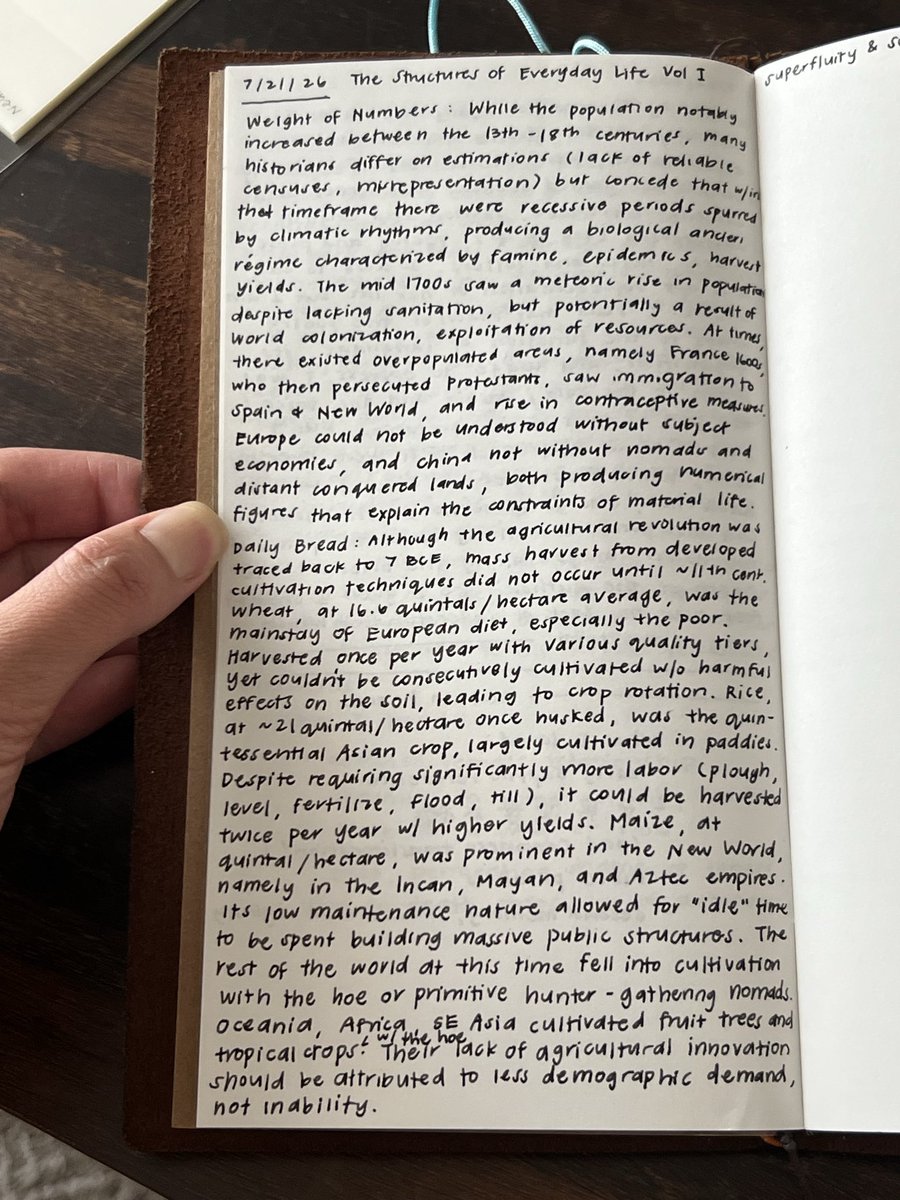 7/21/26 The Structures of Everyday Life Vol I
Weight of Numbers: While the population notably
increased between the 13th-18th centuries, many
historians differ on estimations (lack of reliable
censuses, misrepresentation) but concede that w/in
that timeframe there were recessive periods spurred
by climatic rhythms, producing a biological ancien
régime characterized by famine, epidemics, harvest
yields. The mid 1700s saw a meteoric rise in population
despite lacking sanitation, but potentially a result of
world colonization, exploitation of resources. At times,
there existed overpopulated areas, namely France 1600s,
who then persecuted Protestants, saw immigration to
Spain & New World, and rise in contraceptive measures.
Europe could not be understood without subject
economies, and China not without nomads and
distant conquered lands, both producing numerical
figures that explain the constraints of material life.
Daily Bread: Although the agricultural revolution was
traced back to 7 BCE, mass harvest from developed
cultivation techniques did not occur until ~11th cent.
Wheat, at 16.6 quintals/hectare average, was the
mainstay of European diet, especially the poor.
Harvested once per year with various quality tiers,
yet couldn't be consecutively cultivated w/o harmful
effects on the soil, leading to crop rotation. Rice,
at ~21 quintal/hectare once husked, was the quin-
tessential Asian crop, largely cultivated in paddies.
Despite requiring significantly more labor (plough,
level, fertilize, flood, till), it could be harvested
twice per year w/ higher yields. Maize, at
quintal/hectare, was prominent in the New World,
namely in the Incan, Mayan, and Aztec empires.
Its low maintenance nature allowed for "idle" time
to be spent building massive public structures. The
rest of the world at this time fell into cultivation
with the hoe or primitive hunter-gathering nomads.
Oceania, Africa, SE Asia cultivated fruit trees and
tropical crops w/ the hoe. Their lack of agricultural innovation
should be attributed to less demographic demand,
not inability.
superfluity &